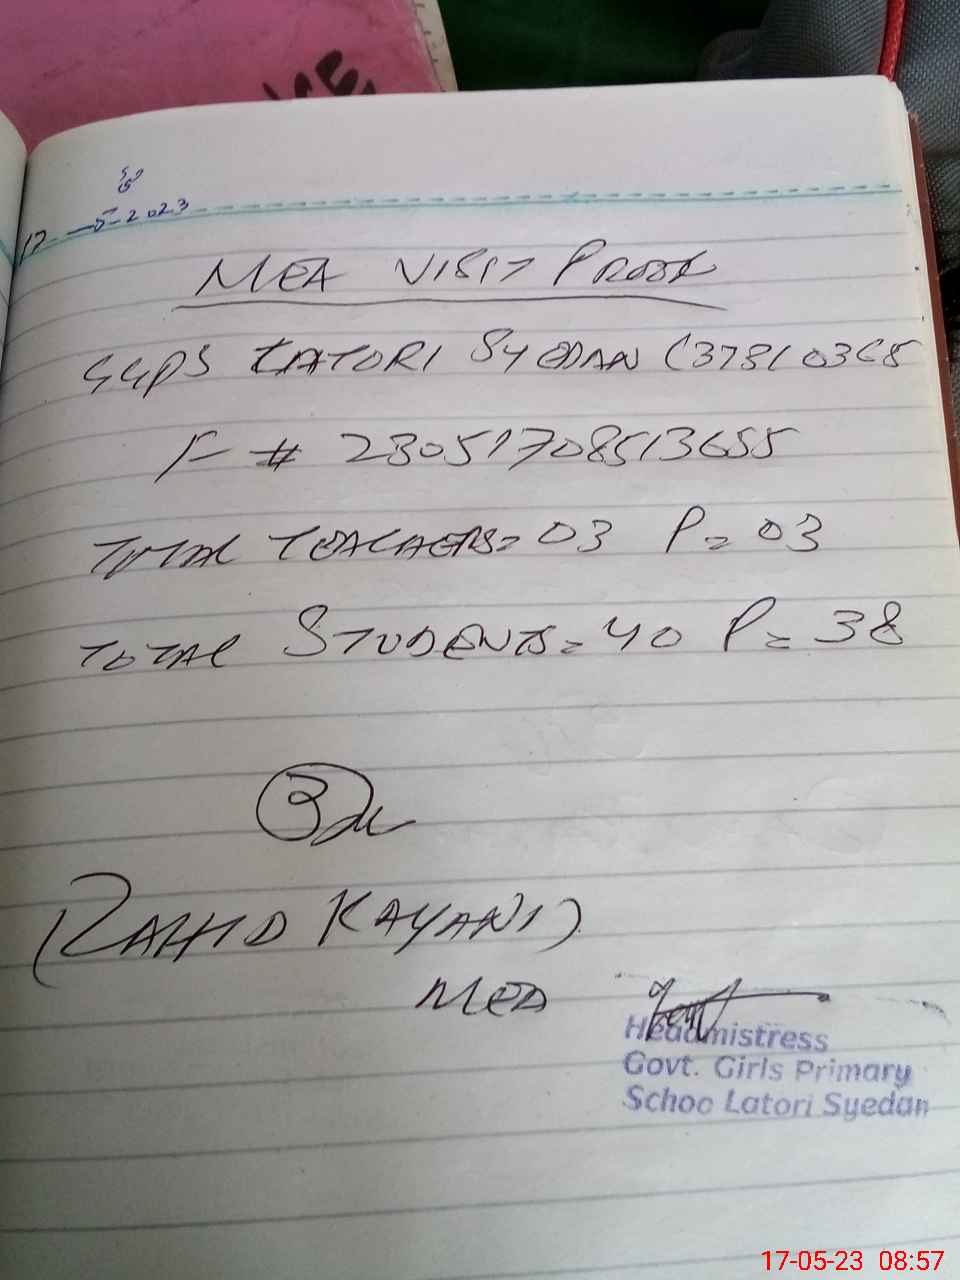 17-5-2023
MEA VISIT PROOF
GGPS LATORI SYEDAN (37310365
F- # 23051708513655
TOTAL TEACHERS = 03 P = 03
TOTAL STUDENTS = 40 P = 38
(ZAHID KAYANI)
MEA
Headmistress
Govt. Girls Primary
Schoo Latori Syedan
17-05-23 08:57